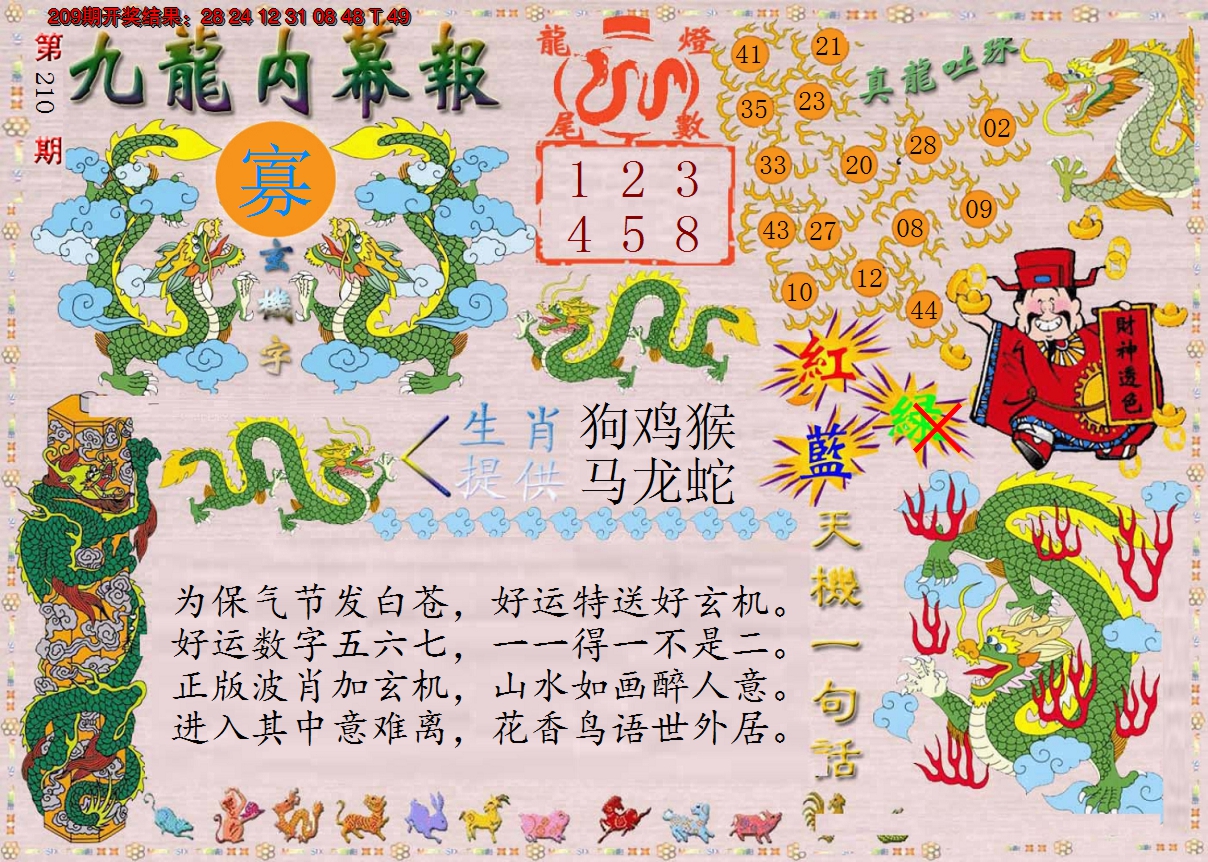 209期开奖结果：28 24 12 31 06 48 T 49
第210期
九龍内幕報
寡
玄機字
龍燈尾數
1 2 3
4 5 8
真龍吐珠
41 21
35 23
33 20 28 02
43 27 08 09
10 12 44
財神透色
紅
綠
藍
生肖 狗鸡猴
提供 马龙蛇
为保气节发白苍，好运特送好玄机。
好运数字五六七，一一得一不是二。
正版波肖加玄机，山水如画醉人意。
进入其中意难离，花香鸟语世外居。
天機一句话